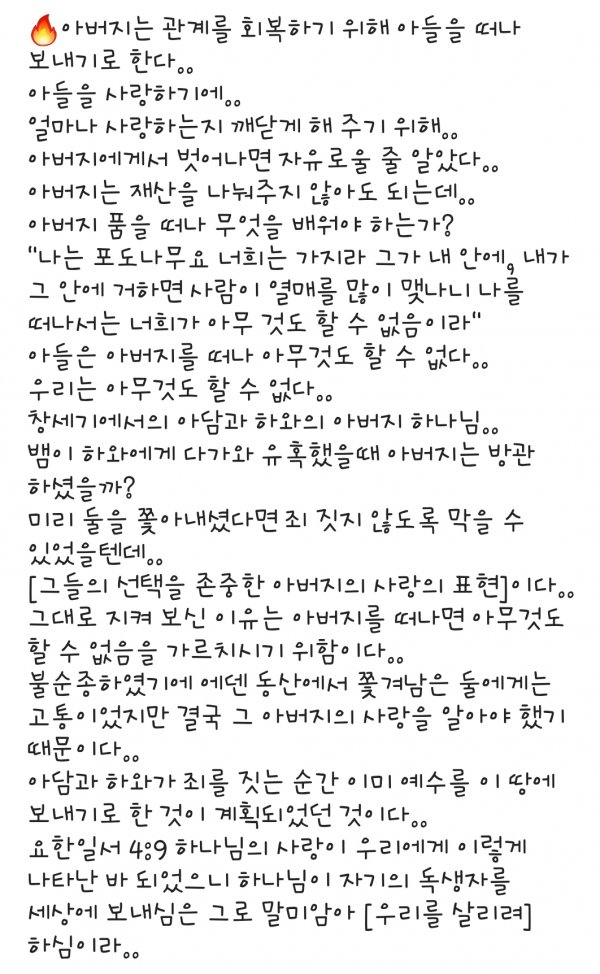 🔥아버지는 관계를 회복하기 위해 아들을 떠나
보내기로 한다..
아들을 사랑하기에..
얼마나 사랑하는지 깨닫게 해 주기 위해..
아버지에게서 벗어나면 자유로울 줄 알았다..
아버지는 재산을 나눠주지 않아도 되는데..
아버지 품을 떠나 무엇을 배워야 하는가?
"나는 포도나무요 너희는 가지라 그가 내 안에, 내가
그 안에 거하면 사람이 열매를 많이 맺나니 나를
떠나서는 너희가 아무 것도 할 수 없음이라"
아들은 아버지를 떠나 아무것도 할 수 없다..
우리는 아무것도 할 수 없다..
창세기에서의 아담과 하와의 아버지 하나님..
뱀이 하와에게 다가와 유혹했을때 아버지는 방관
하셨을까?
미리 둘을 쫓아내셨다면 죄 짓지 않도록 막을 수
있었을텐데..
[그들의 선택을 존중한 아버지의 사랑의 표현]이다..
그대로 지켜 보신 이유는 아버지를 떠나면 아무것도
할 수 없음을 가르치시기 위함이다..
불순종하였기에 에덴 동산에서 쫓겨남은 둘에게는
고통이었지만 결국 그 아버지의 사랑을 알아야 했기
때문이다..
아담과 하와가 죄를 짓는 순간 이미 예수를 이 땅에
보내기로 한 것이 계획되었던 것이다..
요한일서 4:9 하나님의 사랑이 우리에게 이렇게
나타난 바 되었으니 하나님이 자기의 독생자를
세상에 보내심은 그로 말미암아 [우리를 살리려]
하심이라..